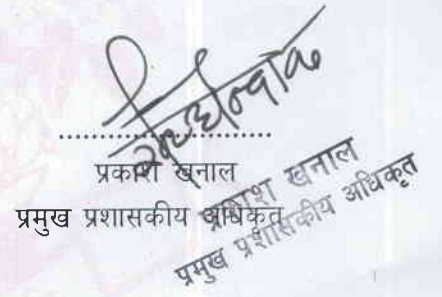 ....................................
प्रकाश खनाल
प्रमुख प्रशासकीय अधिकृत
प्रकाश खनाल
प्रमुख प्रशासकीय अधिकृत